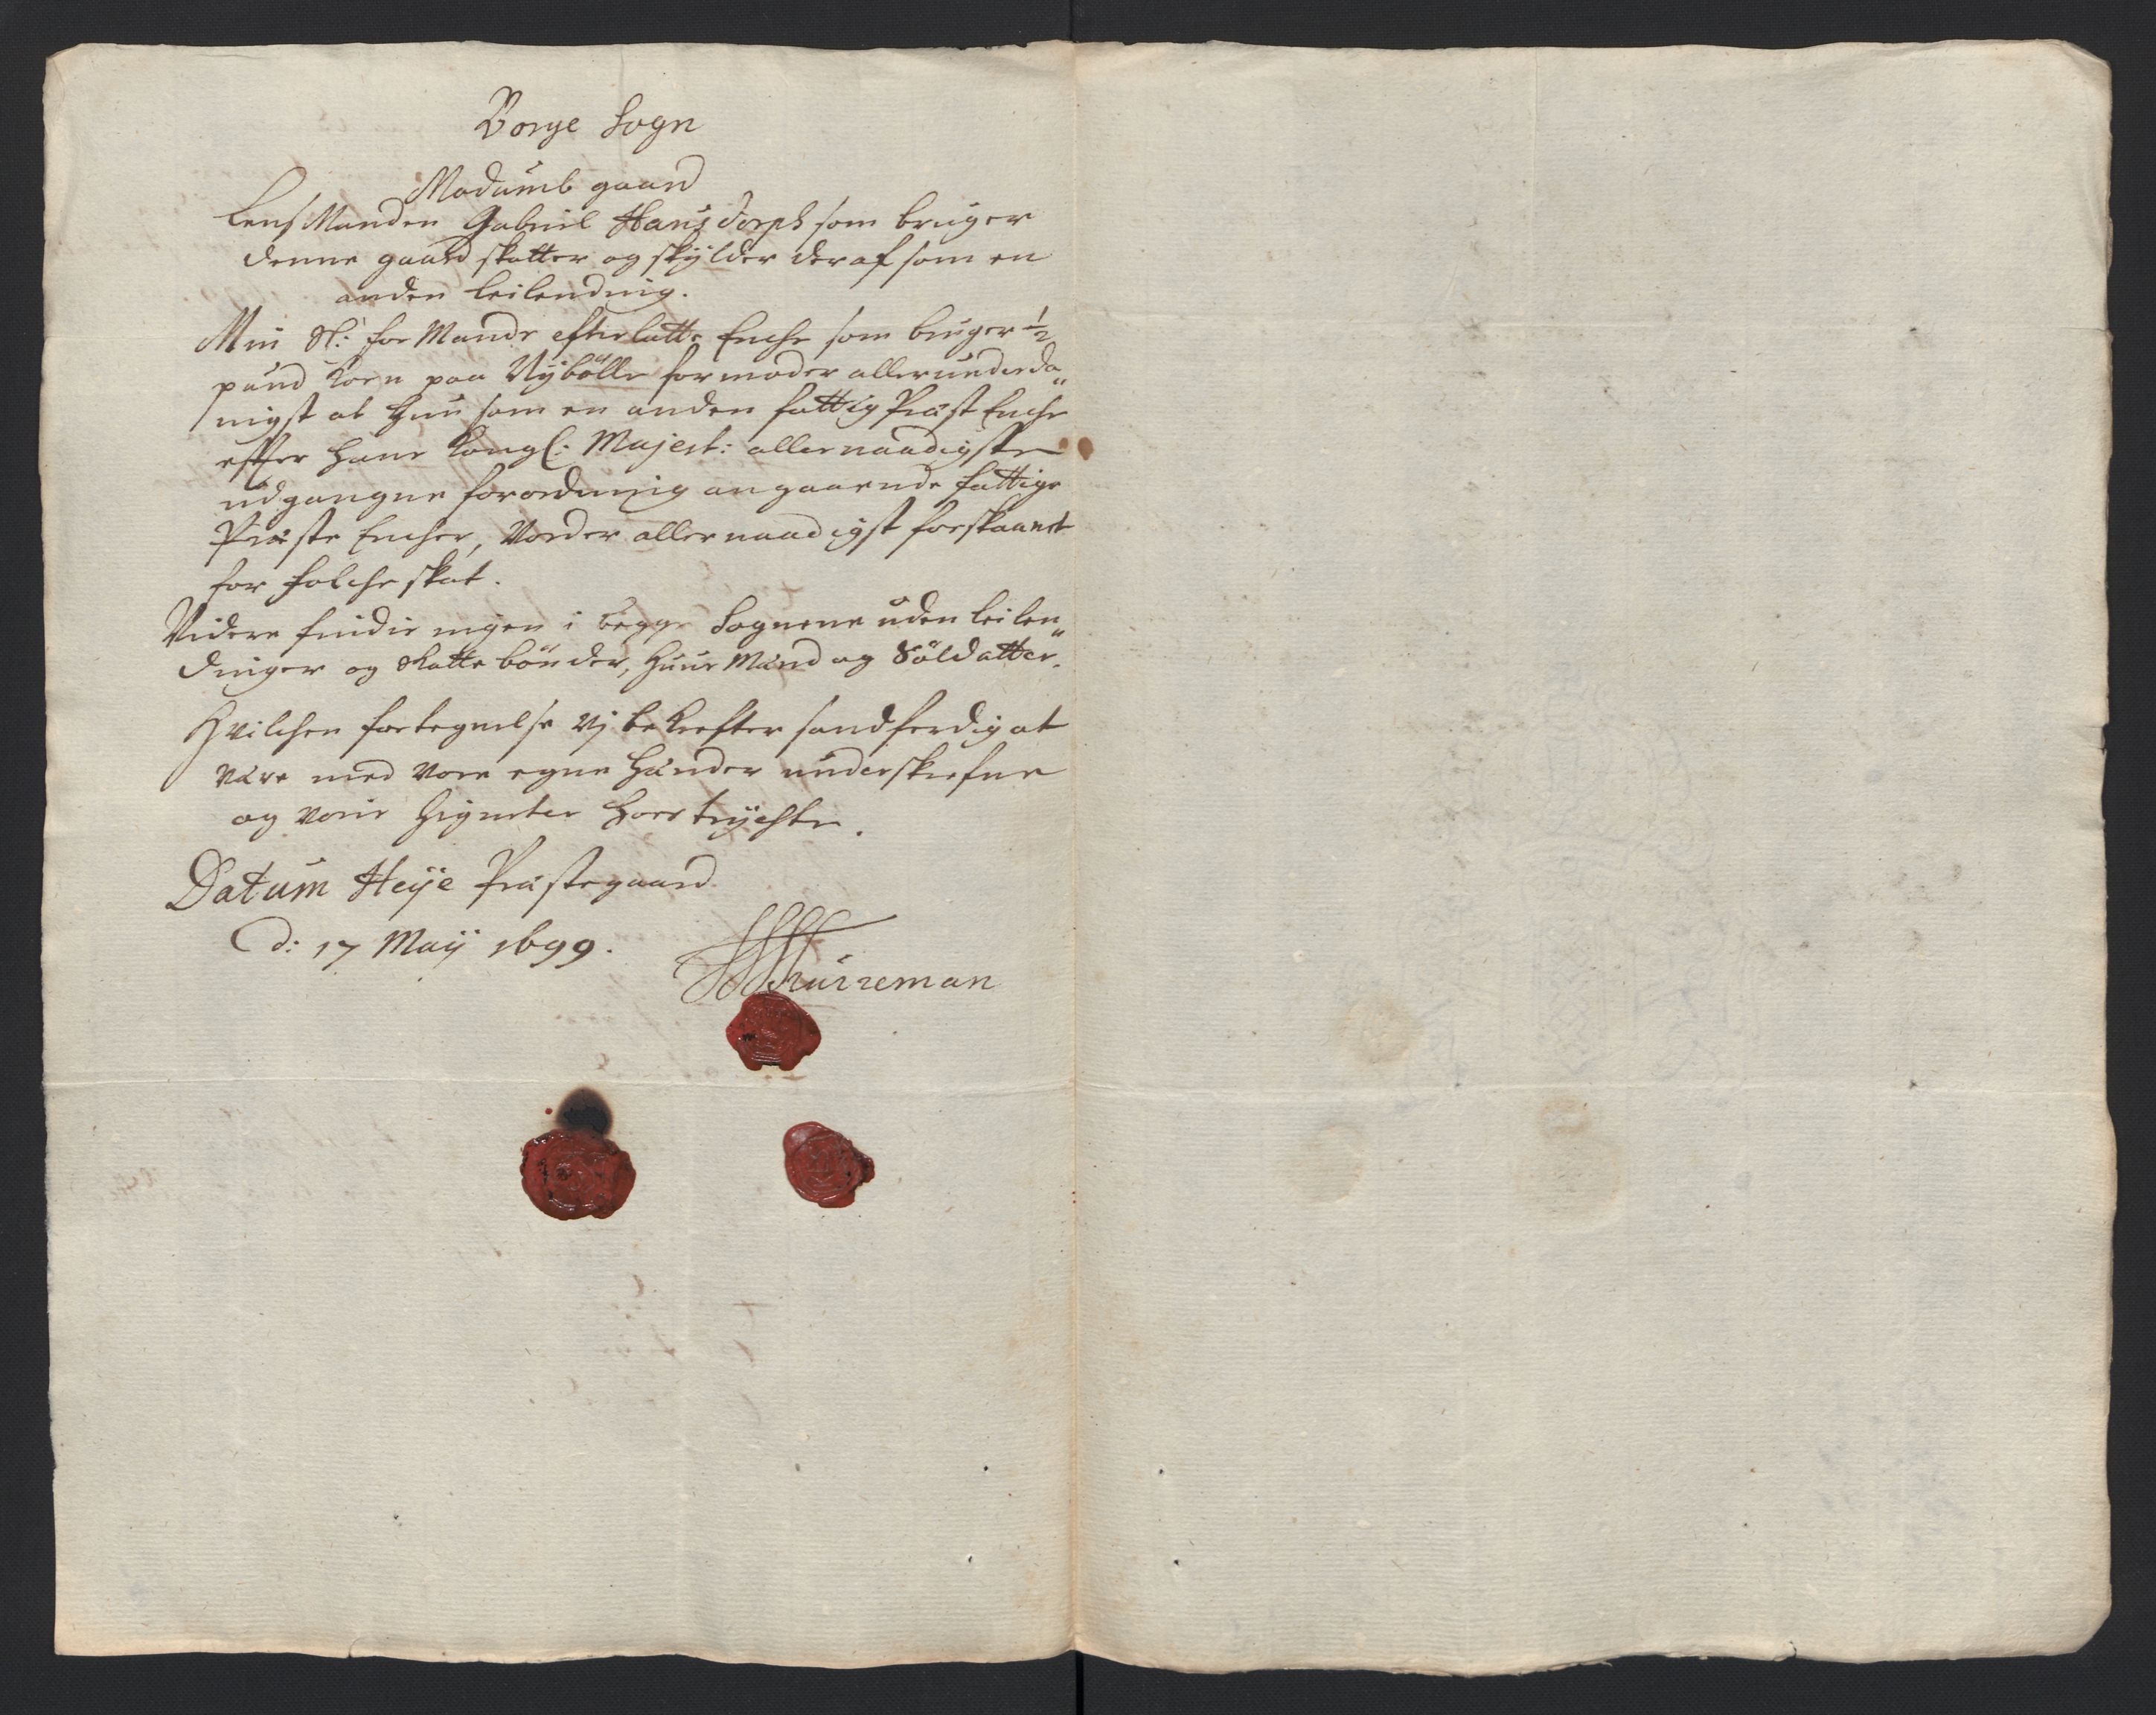 Borge Sogn
Modumb gaard
LensManden Gabriel Hansdorph som bruger
denne gaard skatter og skÿlder deraf som en
anden leilending.
Min Sl: forMands efterlatte Enche som bruger ½
pund Korn paa Nÿbølle formoder allerunderda"
nigst at hun som en anden fattig Præst Enche
effter Hans Kongl: Majest: allernaadigste
udgangne forordning angaaende fattige
Præste Encher, Vorder allernaadigst forskaanet
for folche skat.
Videre findis ingen i begge Sognene uden leilen"
dinger og Skatte bönder, Huus Mænd og Söldatter.
Hvilchen fortegnelse vj bekrefter sandferdig at
være med vore egne hænder underskrefne
og voris Signeter hoes trÿchte.
Datum Heÿe Præstegaard
d: 17 Maÿ 1699.